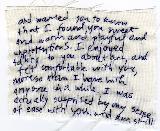 and wanted you to know
that I found you sweet
and warm and playful and
unpretentious. I enjoyed
talking to you about him, and
felt comfortable with you,
more so than I have with
anyone in a while. I was
actually surprised by my sense
of ease with you. and am still